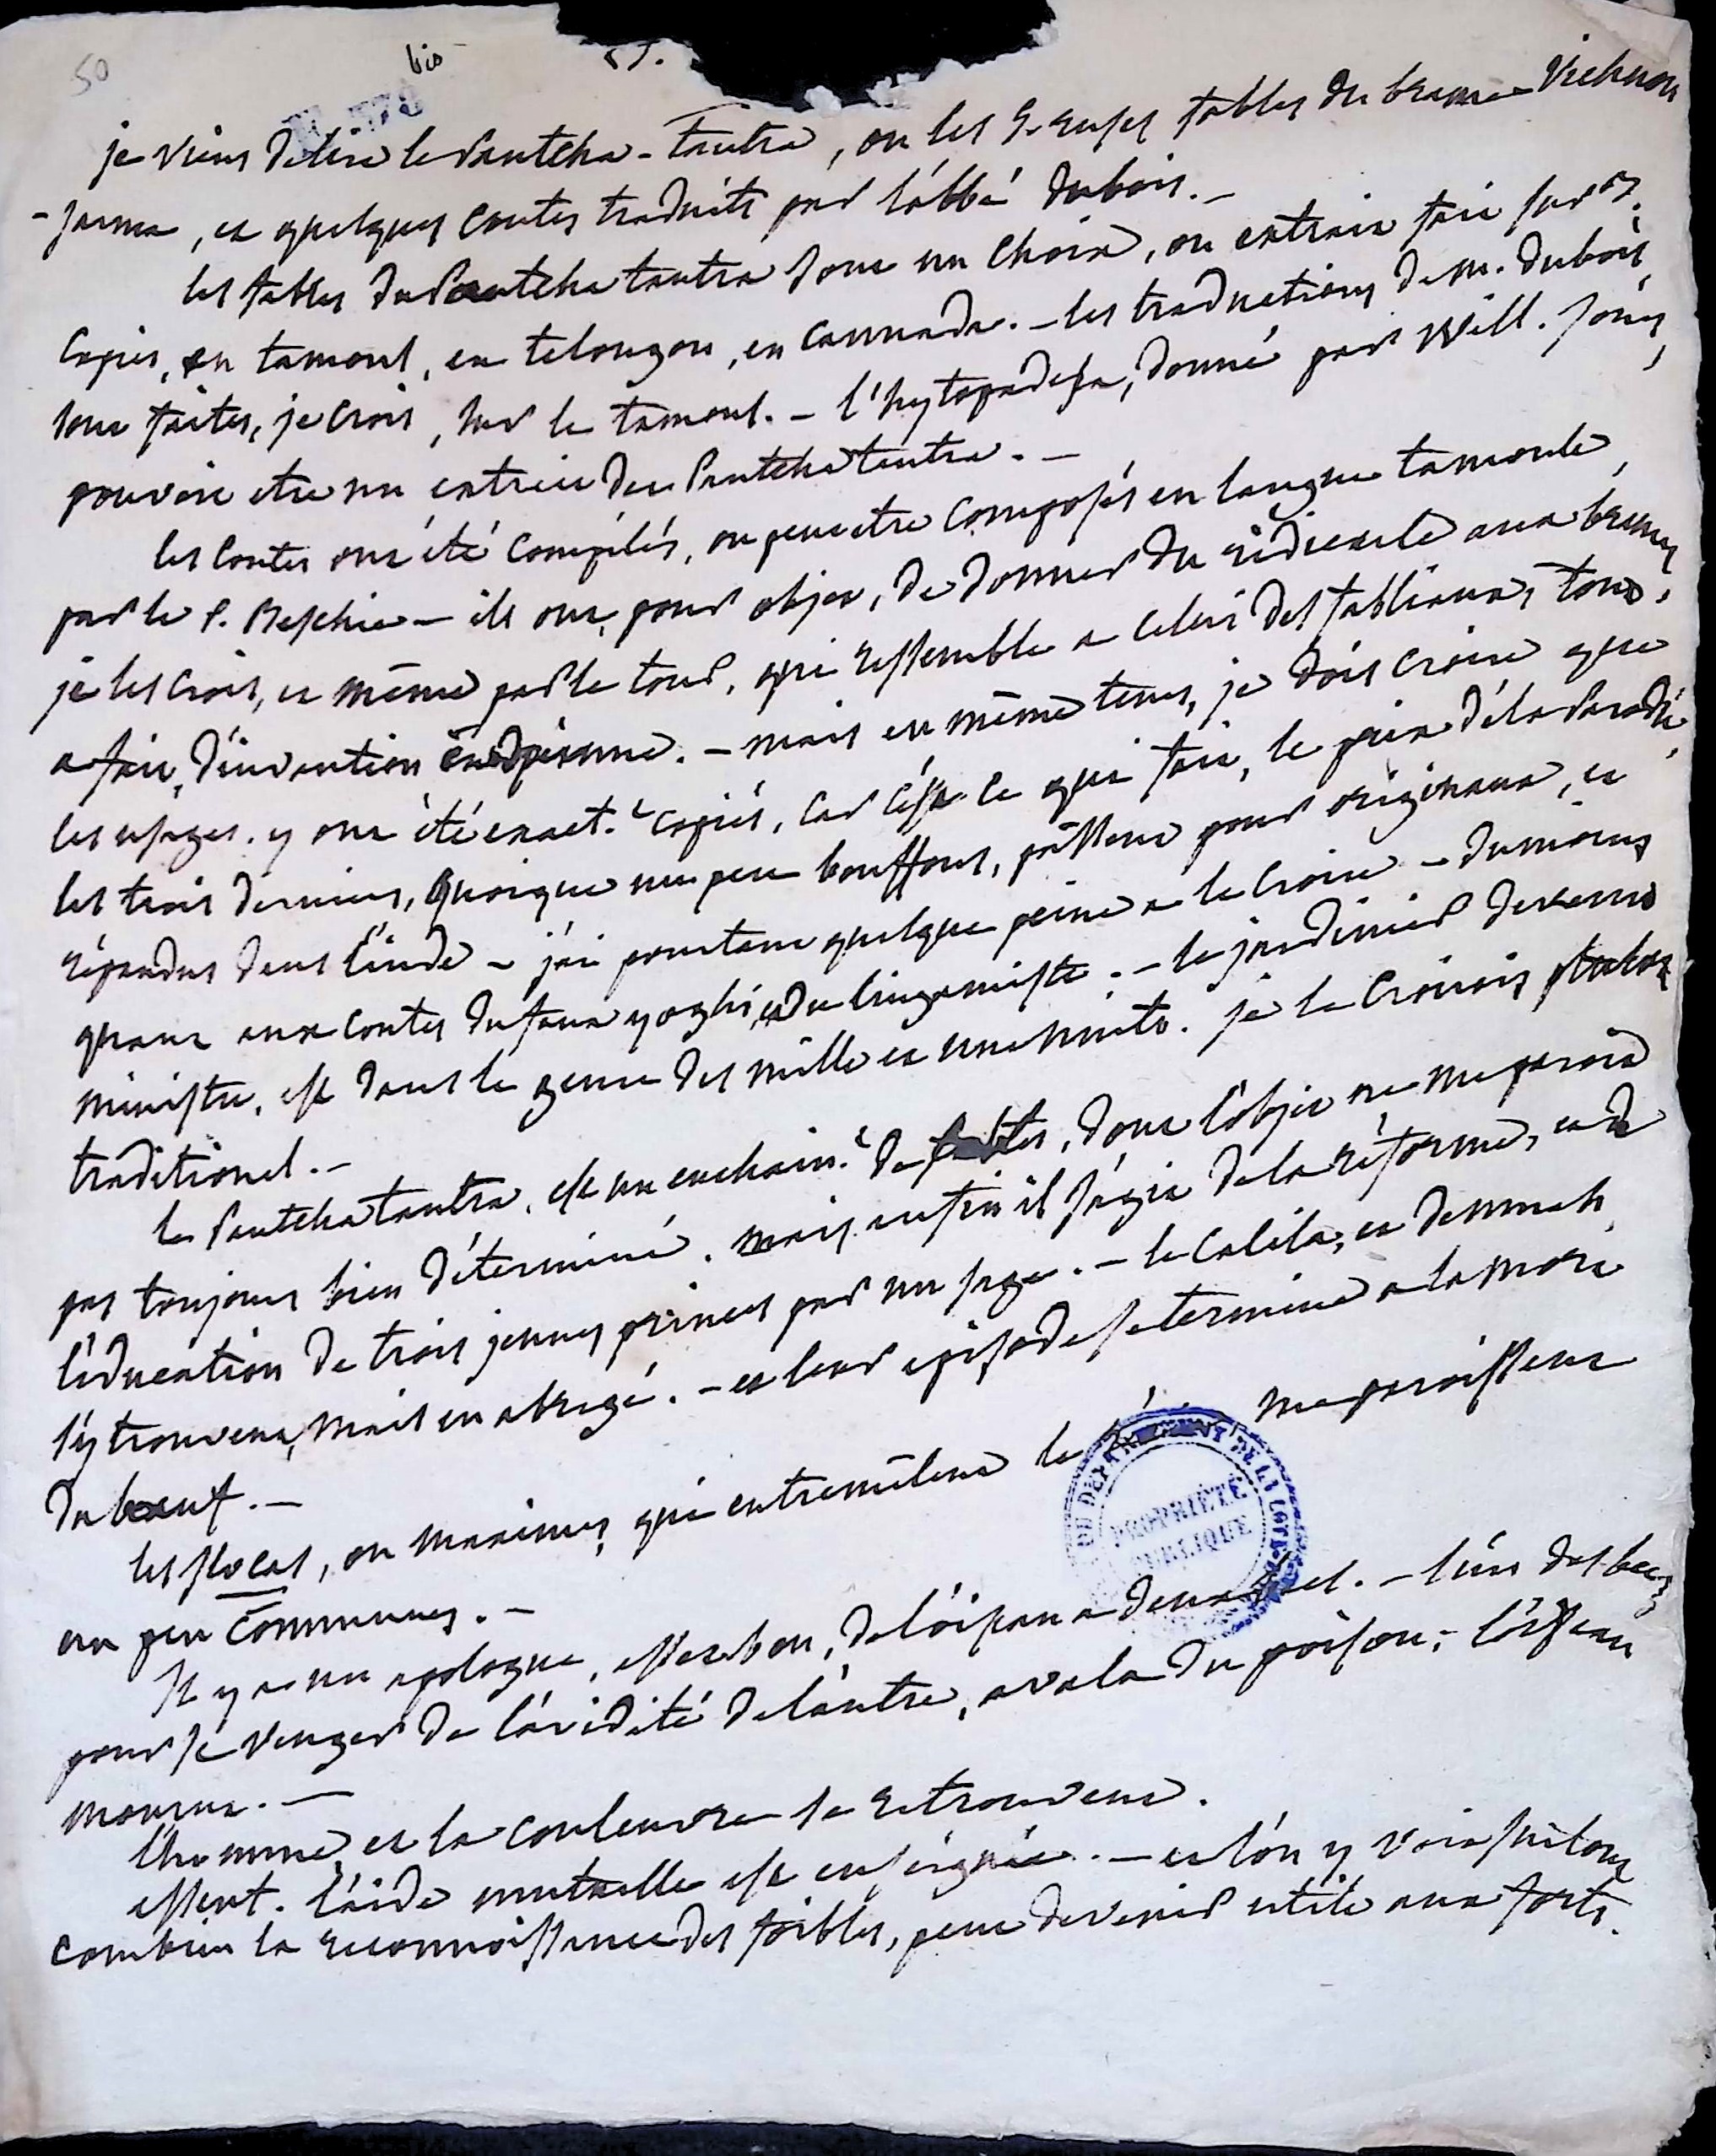 50
bis
je viens de lire le Pantcha-Tantra, ou les 5 ruses fables du brame Vichnou
-sarma, et quelques contes traduits par l'abbé dubois. -
les fables du Pantcha tantra sont un choix, ou extrait fait sur 3.
copies, en tamoul, en telougou, en cannada. - les traductions de m. dubois
sont faites, je crois, sur le tamoul. - l'hytopadesa, donné par Will. Jones,
pouvait etre un extrait du Pantcha tantra. -
les contes ont été compilés, ou peut etre composés en langue tamoule,
par le P. Beschie - ils ont, pour objet, de donner du ridicule aux brames
je les crois, et même par le tour, qui ressemble a celui des fabliaux, tout,
a fait, d'invention européenne. - mais en même tems, je dois croire que
les usages, y ont été exact.t copiés, car c'est ce qui fait, le prix de la Parodie,
les trois derniers, quoique un peu bouffons, passent pour originaux, et
répandus dans l'inde - j'ai pourtant quelque peine a le croire - du moins
quant aux contes du faux yoghi, et du lingamiste. - le jardinier devenu
ministre, est dans le genre des mille et une nuits. je le croirois plutot
traditionel. -
le Pantcha tantra, est un enchain.t de fables, dont l'objet ne me paroit
pas toujours bien déterminé. mais enfin il s'agit de la réforme, et de
l'éducation de trois jeunes princes par un sage. - le Calila, et demnah,
s'y trouvent, mais en abrégé. - et leur episode se termine a la mort
du boeuf. -
les slocas, ou maximes, qui entremêlent le me paroissent
un peu communes. -
Il y a un apologue, assez bon, de l'oiseau a deux becs. - l'un des becs
pour se venger de l'avidité de l'autre, avala du poison, - l'oiseau
mourut. -
l'homme et la couleuvre se retrouvent.
l'aide mutuelle est enseignée. - et l'on y voit surtout
combien la reconnoissance des foibles, peut devenir utile aux forts.
DU DÉPARTEMENT DE LA
PROPRIÉTÉ
PUBLIQUE